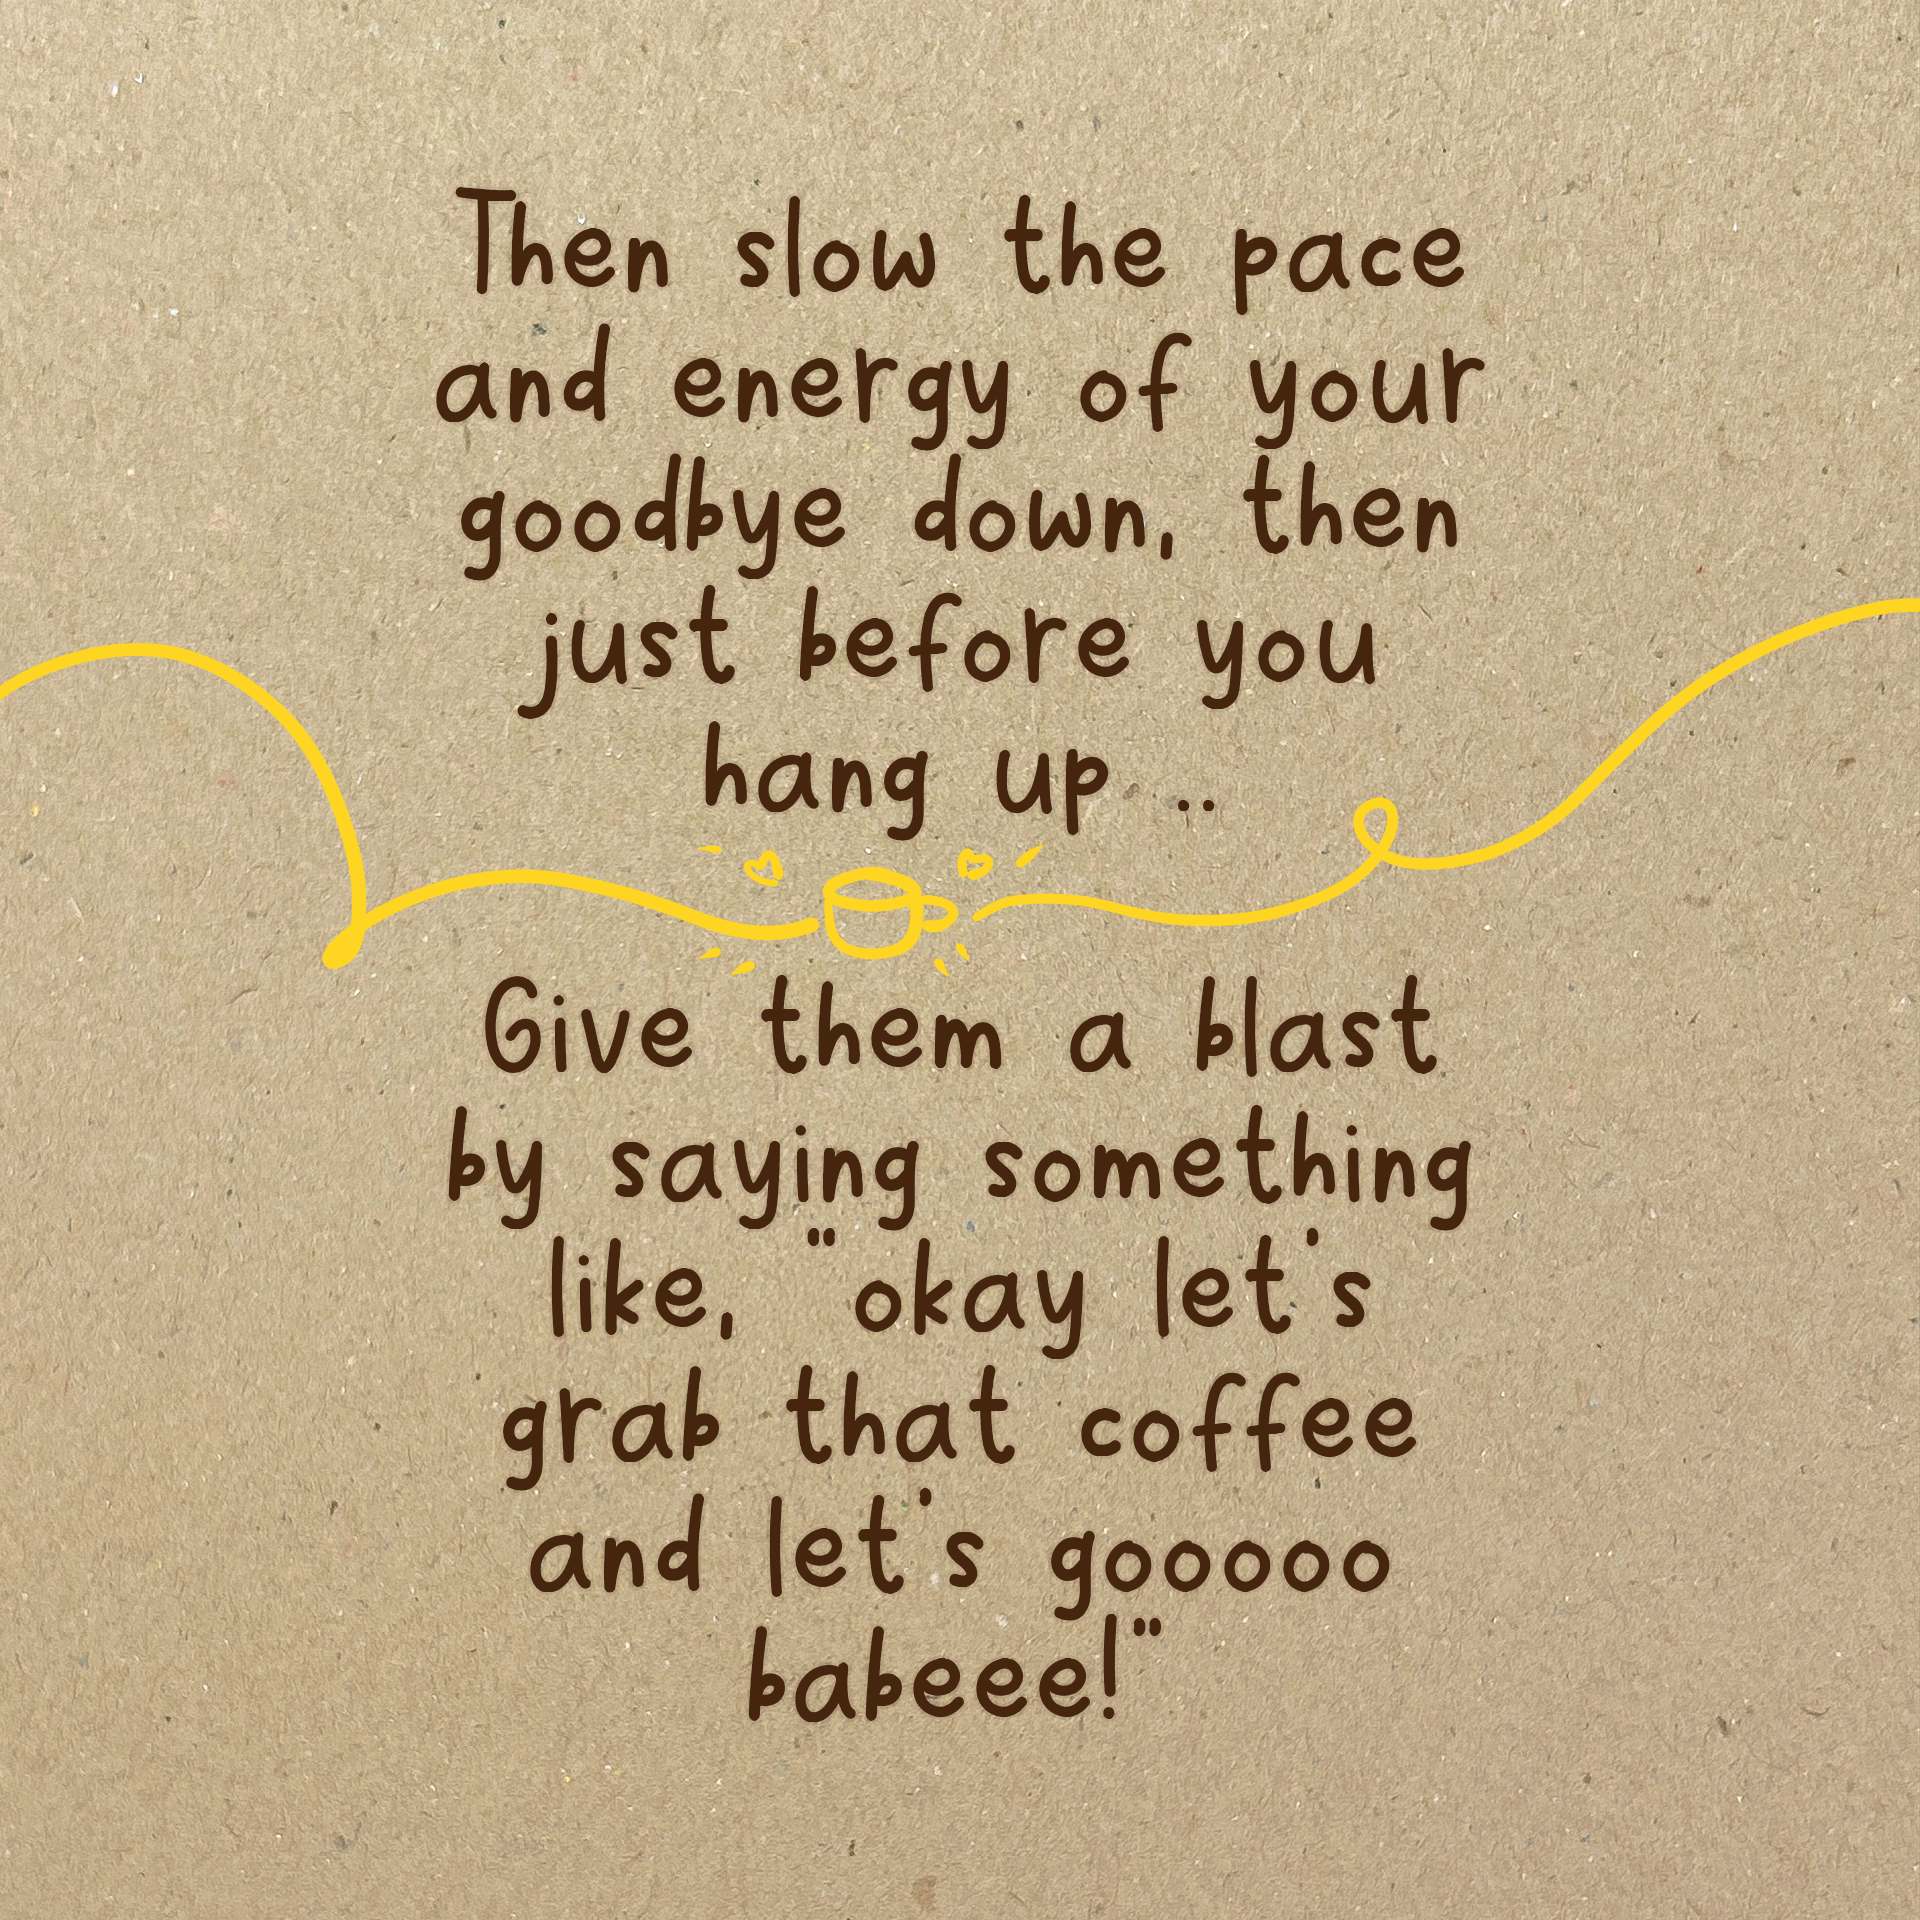 Then slow the pace
and energy of your
goodbye down, then
just before you
hang up ..
Give them a blast
by saying something
like, "okay let's
grab that coffee
and let's gooooo
babeee!"